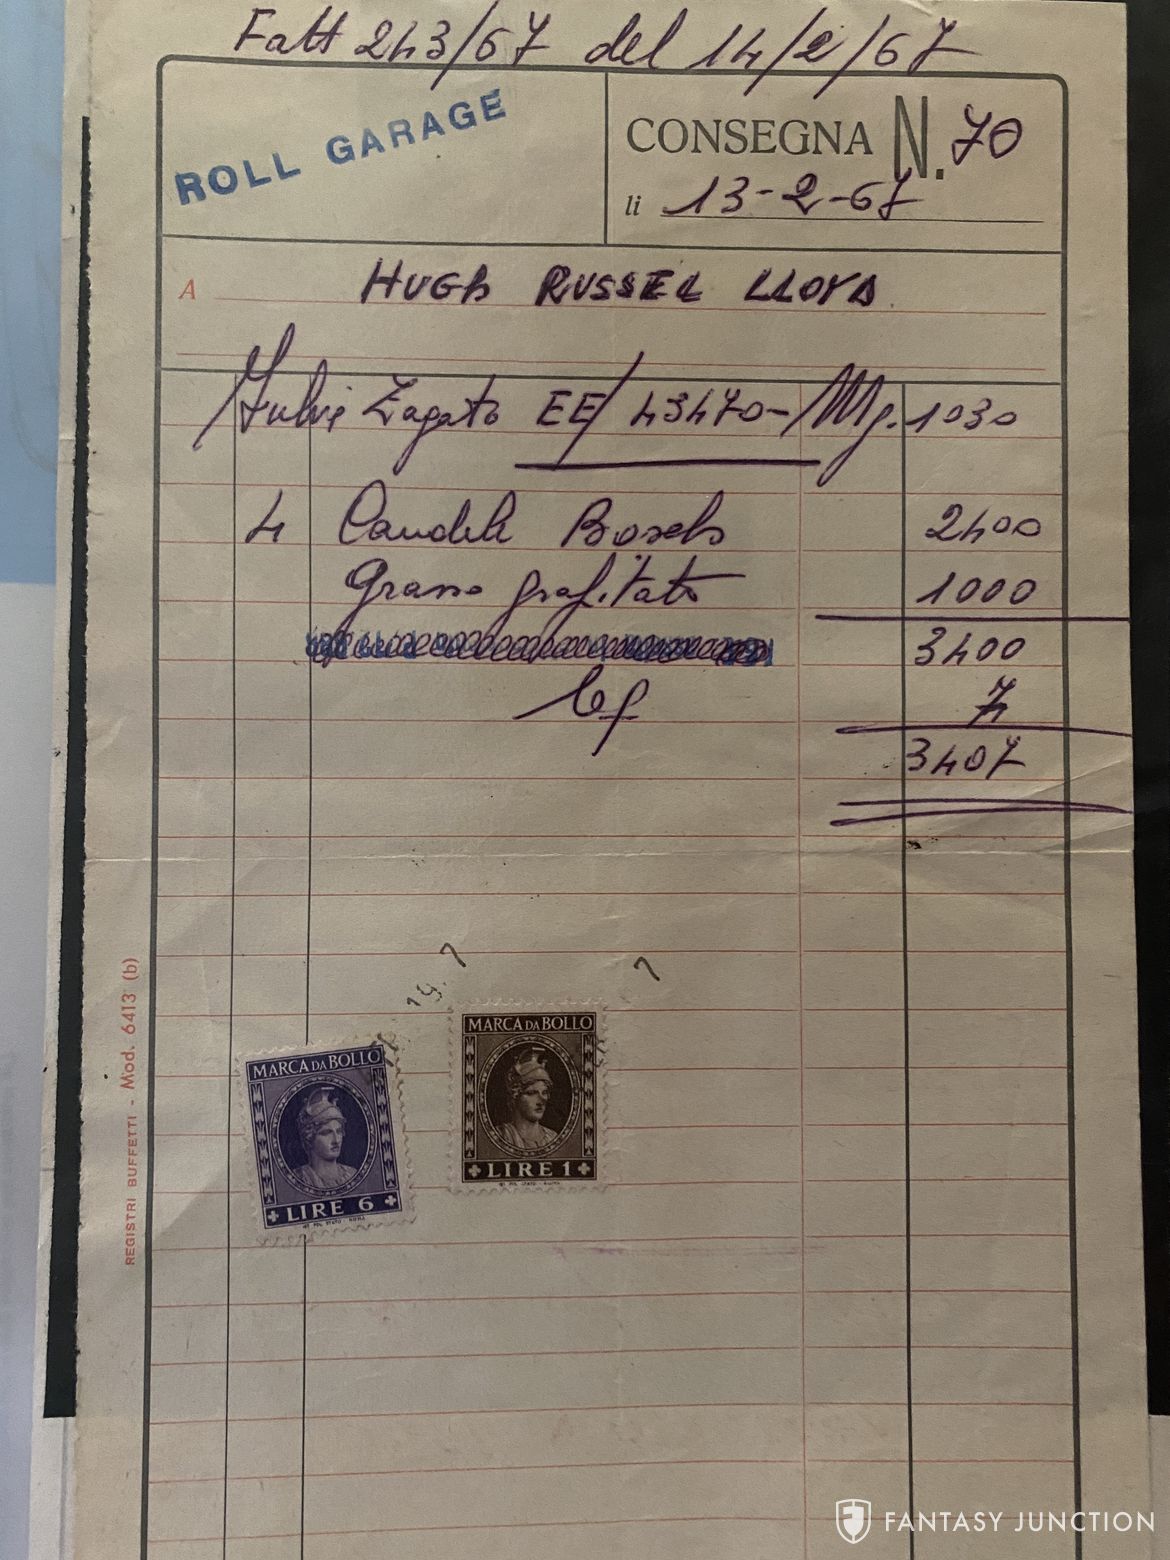 Fatt 243/67 del 14/2/67
ROLL GARAGE
CONSEGNA N. 70
li 13-2-67
A HUGH RUSSEL LLOYD
Fulvi Zagato EE/43470-/Mg. 1030
4 Candele Bosch 2400
Grasso grafitato 1000
3400
7
3407
MARCA DA BOLLO
LIRE 6
MARCA DA BOLLO
LIRE 1
REGISTRI BUFFETTI - Mod. 6413 (b)
FANTASY JUNCTION